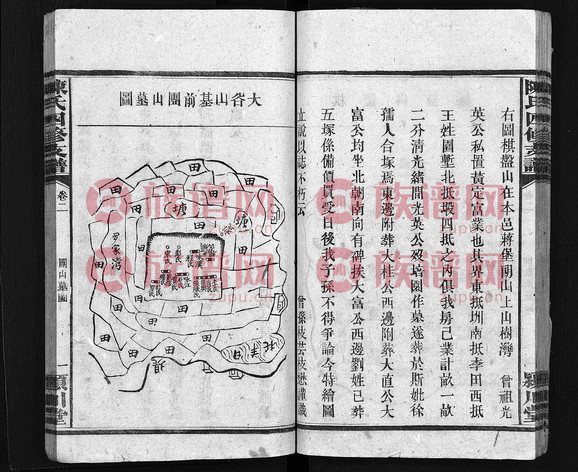 陳氏四修支譜
右圖棋盤山在本邑蔣堡明山上山樹灣 曾祖光
英公私置黃定富業也其界東抵坳南抵李田西抵
王姓圍塹北抵塅四抵之內俱我房己業計畝一畝
二分清光緒間光英公發培園作墓遂葬於斯妣徐
孺人合塚焉東邊附葬大桂公西邊附葬大直公大
富公均坐北朝南向有碑扶大富公西邊劉姓己葬
五塚係備價買受日後我子孫不得爭論今特繪圖
立說以誌不朽云 曾孫
大岩山墓前團山墓圖
田
田
田
田
田
田
田
田
塘
塘
陳氏四修支譜
卷二
團山墓圖
一
潁川堂
族谱网